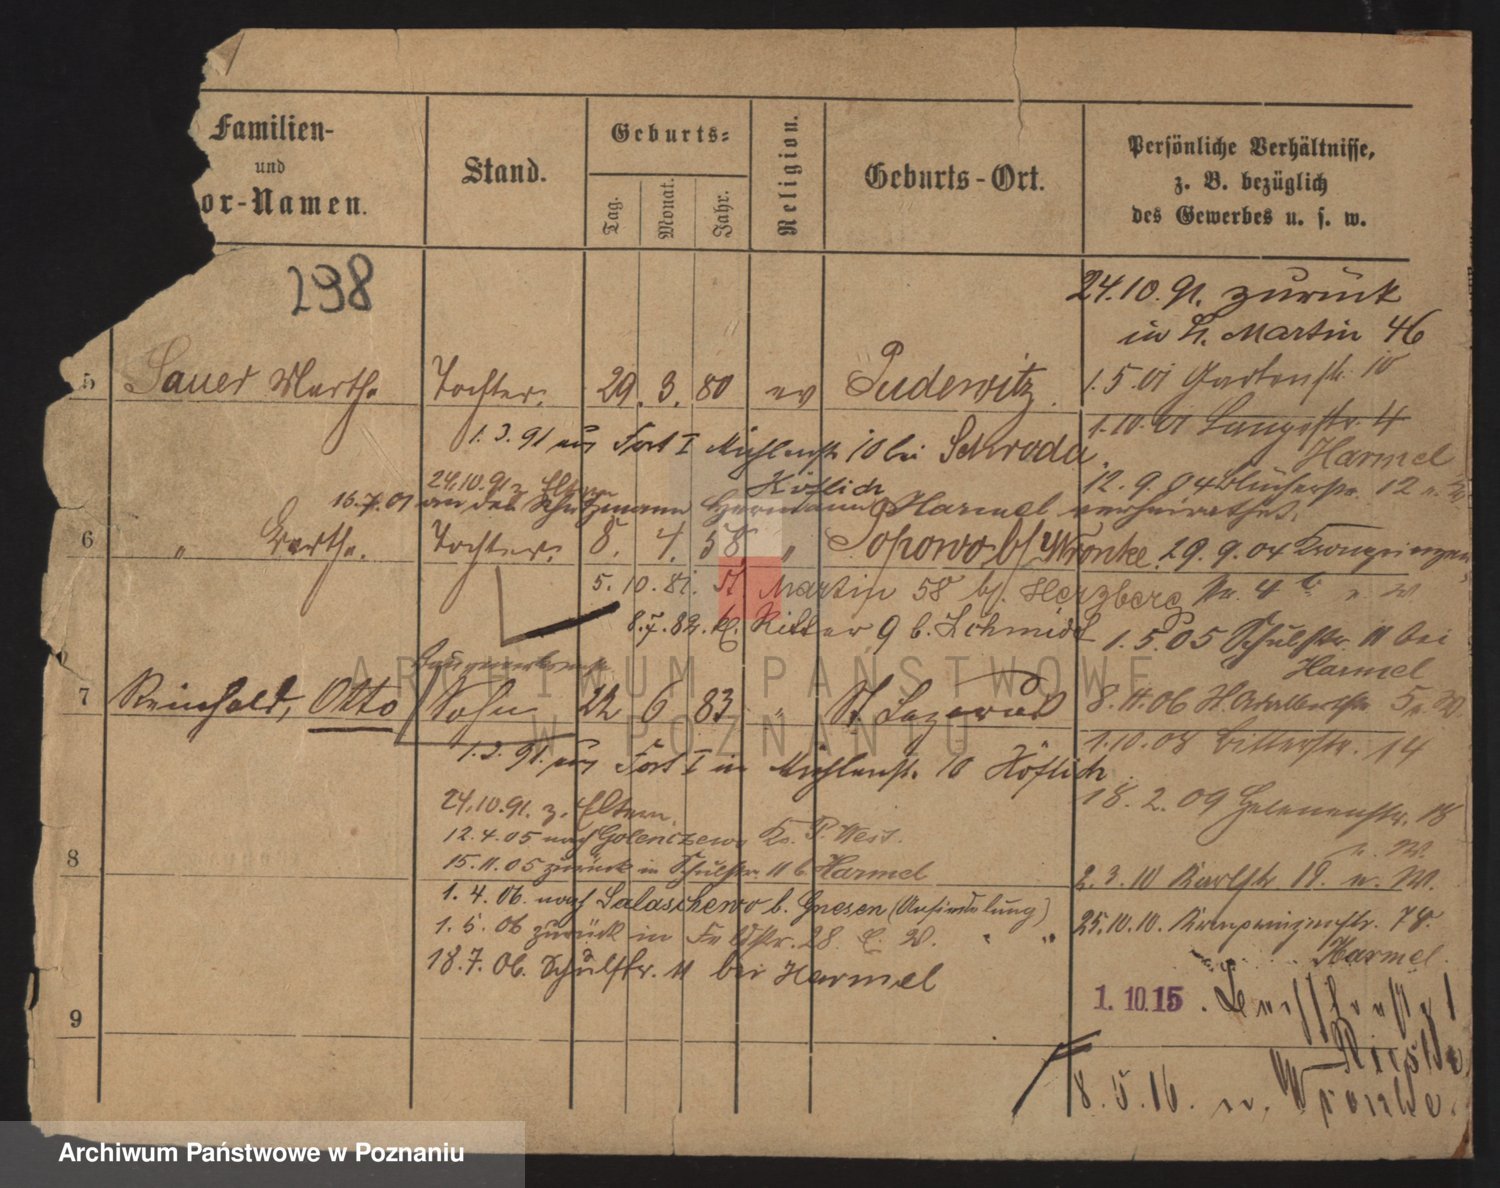 Familien-
und
or-Namen.
Stand.
Geburts-
Tag.
Monat.
Jahr.
Religion.
Geburts-Ort.
Persönliche Verhältnisse,
z. B. bezüglich
des Gewerbes u. s. w.
298
24.10.91. zurück
in St. Martin 46
5 Sauer Martha Tochter. 29. 3. 80 ev Pudewitz.
1.5.01 Gartenstr. 10
1.10.01 Langestr. 4
Harmel
1.3.91 aus Fort I Mühlenstr 10 bei Schroda.
24.10.91 z. Eltern
Höflich
12.9.04 Blücherstr. 12
16.7.01 an den Schutzmann Hermann Harmel verheirathet.
6 " Bertha. Tochter. 8. 4. 58 " Popowo b/ Wronke
29.9.04 Kronprinzen
5.10.81. St. Martin 58 b/. Herzberg
str. 4
8.7.82. kl. Ritter 9 b. Schmidt
1.5.05 Schulstr. 11 bei
Harmel
7 Reinhold, Otto Sohn 22 6 83 " St. Lazarus
8.11.06 St. Adalbertstr 5
1.3.91. aus Fort I in Mühlenstr. 10 Höflich
1.10.08 Ritterstr. 14
24.10.91. z. Eltern.
18.2.09 Helenenstr. 18
u. W.
12.4.05 nach Golenczewo Kr. P. West.
8
15.11.05 zurück in Schulstr. 11 b. Harmel
2.3.10 Karlstr 19. u. W.
1.4.06. nach Salaschewo b. Gnesen (Ansiedelung)
1.5.06 zurück in
28.
25.10.10. Kronprinzenstr. 78.
Harmel.
18.7.06. Schulstr. 11 bei Harmel
9
1.10.15
8.5.16. n. Wronke.
ARCHIWUM PAŃSTWOWE
W POZNANIU
Archiwum Państwowe w Poznaniu